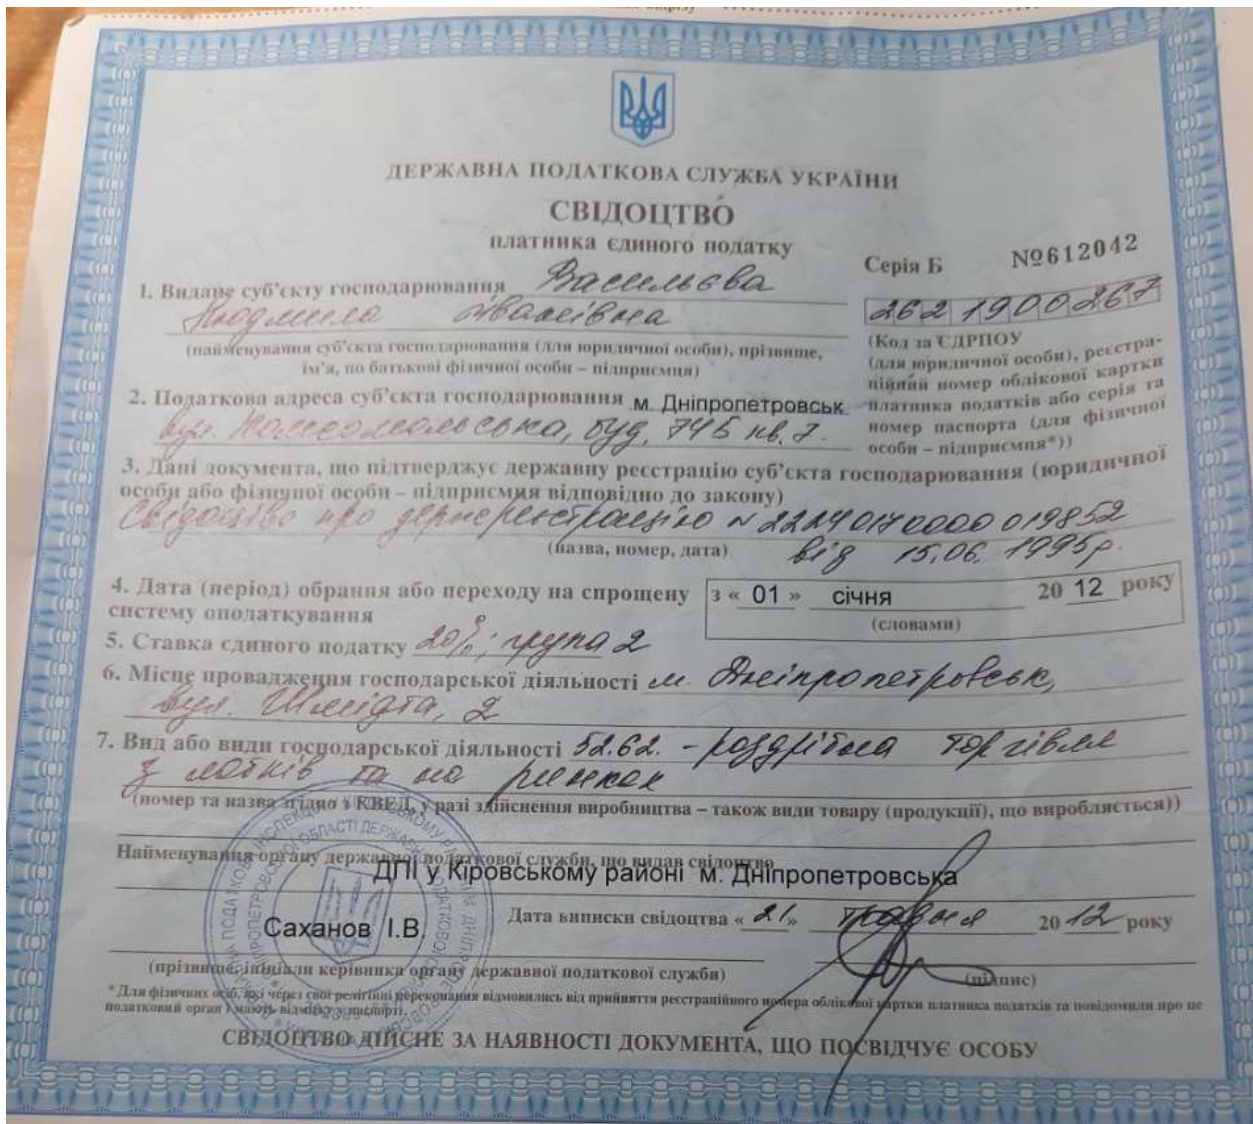 ДЕРЖАВНА ПОДАТКОВА СЛУЖБА УКРАЇНИ
СВІДОЦТВО
платника єдиного податку
Серія Б №612042
1. Видане суб'єкту господарювання Васильєва
Людмила Іванівна
2621900267
(найменування суб'єкта господарювання (для юридичної особи), прізвище,
ім'я, по батькові фізичної особи – підприємця)
(Код за ЄДРПОУ
(для юридичної особи), реєстра-
ційний номер облікової картки
платника податків або серія та
номер паспорта (для фізичної
особи – підприємця*))
2. Податкова адреса суб'єкта господарювання м. Дніпропетровськ
вул. Комсомольська, буд. 74Б кв. 7.
3. Дані документа, що підтверджує державну реєстрацію суб'єкта господарювання (юридичної
особи або фізичної особи – підприємця відповідно до закону)
Свідоцтво про держреєстрацію № 22240170000019852
(назва, номер, дата) від 15.06.1995р.
4. Дата (період) обрання або переходу на спрощену
систему оподаткування
з « 01 » січня 20 12 року
(словами)
5. Ставка єдиного податку 20%; група 2
6. Місце провадження господарської діяльності м. Дніпропетровськ,
вул. Шмідта, 2
7. Вид або види господарської діяльності 52.62. - роздрібна торгівля
з лотків та на ринках
(номер та назва згідно з КВЕД, у разі здійснення виробництва – також види товару (продукції), що виробляється))
Найменування органу державної податкової служби, що видав свідоцтво
ДПІ у Кіровському районі м. Дніпропетровська
Саханов І.В.
Дата виписки свідоцтва « 21 » травня 20 12 року
(прізвище, ініціали керівника органу державної податкової служби)
(підпис)
* Для фізичних осіб, які через свої релігійні переконання відмовились від прийняття реєстраційного номера облікової картки платника податків та повідомили про це
податковий орган і мають відмітку у паспорті.
СВІДОЦТВО ДІЙСНЕ ЗА НАЯВНОСТІ ДОКУМЕНТА, ЩО ПОСВІДЧУЄ ОСОБУ